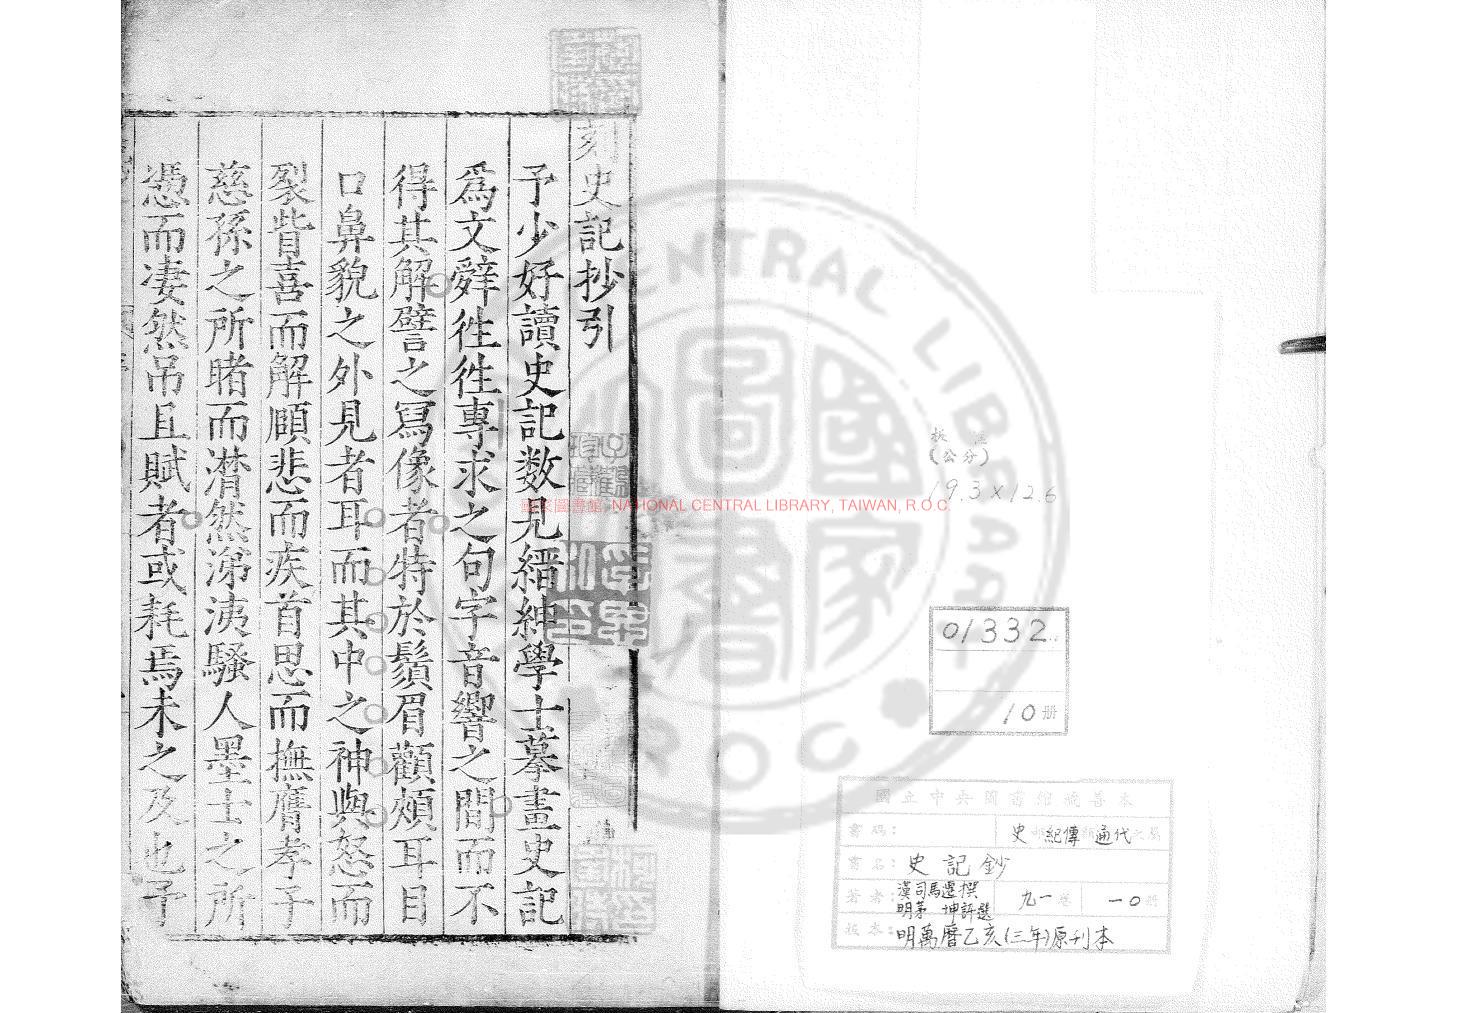 刻史記抄引
予少好讀史記数見縉紳學士摹畫史記
爲文辤徃徃專求之句字音響之間而不
得其解譬之冩像者特於鬚眉顴頰耳目
口鼻貌之外見者耳而其中之神與怒而
裂眥喜而解頤悲而疾首思而撫膺孝子
慈孫之所睹而潸然涕洟騷人墨士之所
憑而凄然吊且賦者或耗焉未之及也予
國家圖書館 NATIONAL CENTRAL LIBRARY, TAIWAN, R.O.C.
NATIONAL CENTRAL LIBRARY
R.O.C.
(公分)
19.3×12.6
01332
10册
國立中央圖書館藏善本
書碼: 史 紀傳 通代
書名: 史記鈔
著者: 漢司馬遷撰
明茅 坤評選
九一卷 一〇册
板本: 明萬曆乙亥(三年)原刊本